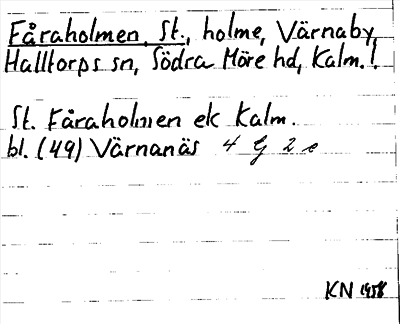 Fåraholmen, St., holme, Värnaby,
Halltorps sn, Södra Möre hd, Kalm.l.
St. Fåraholmen ek Kalm.
bl. (49) Värnanäs 4 G 2 e
KN 1958